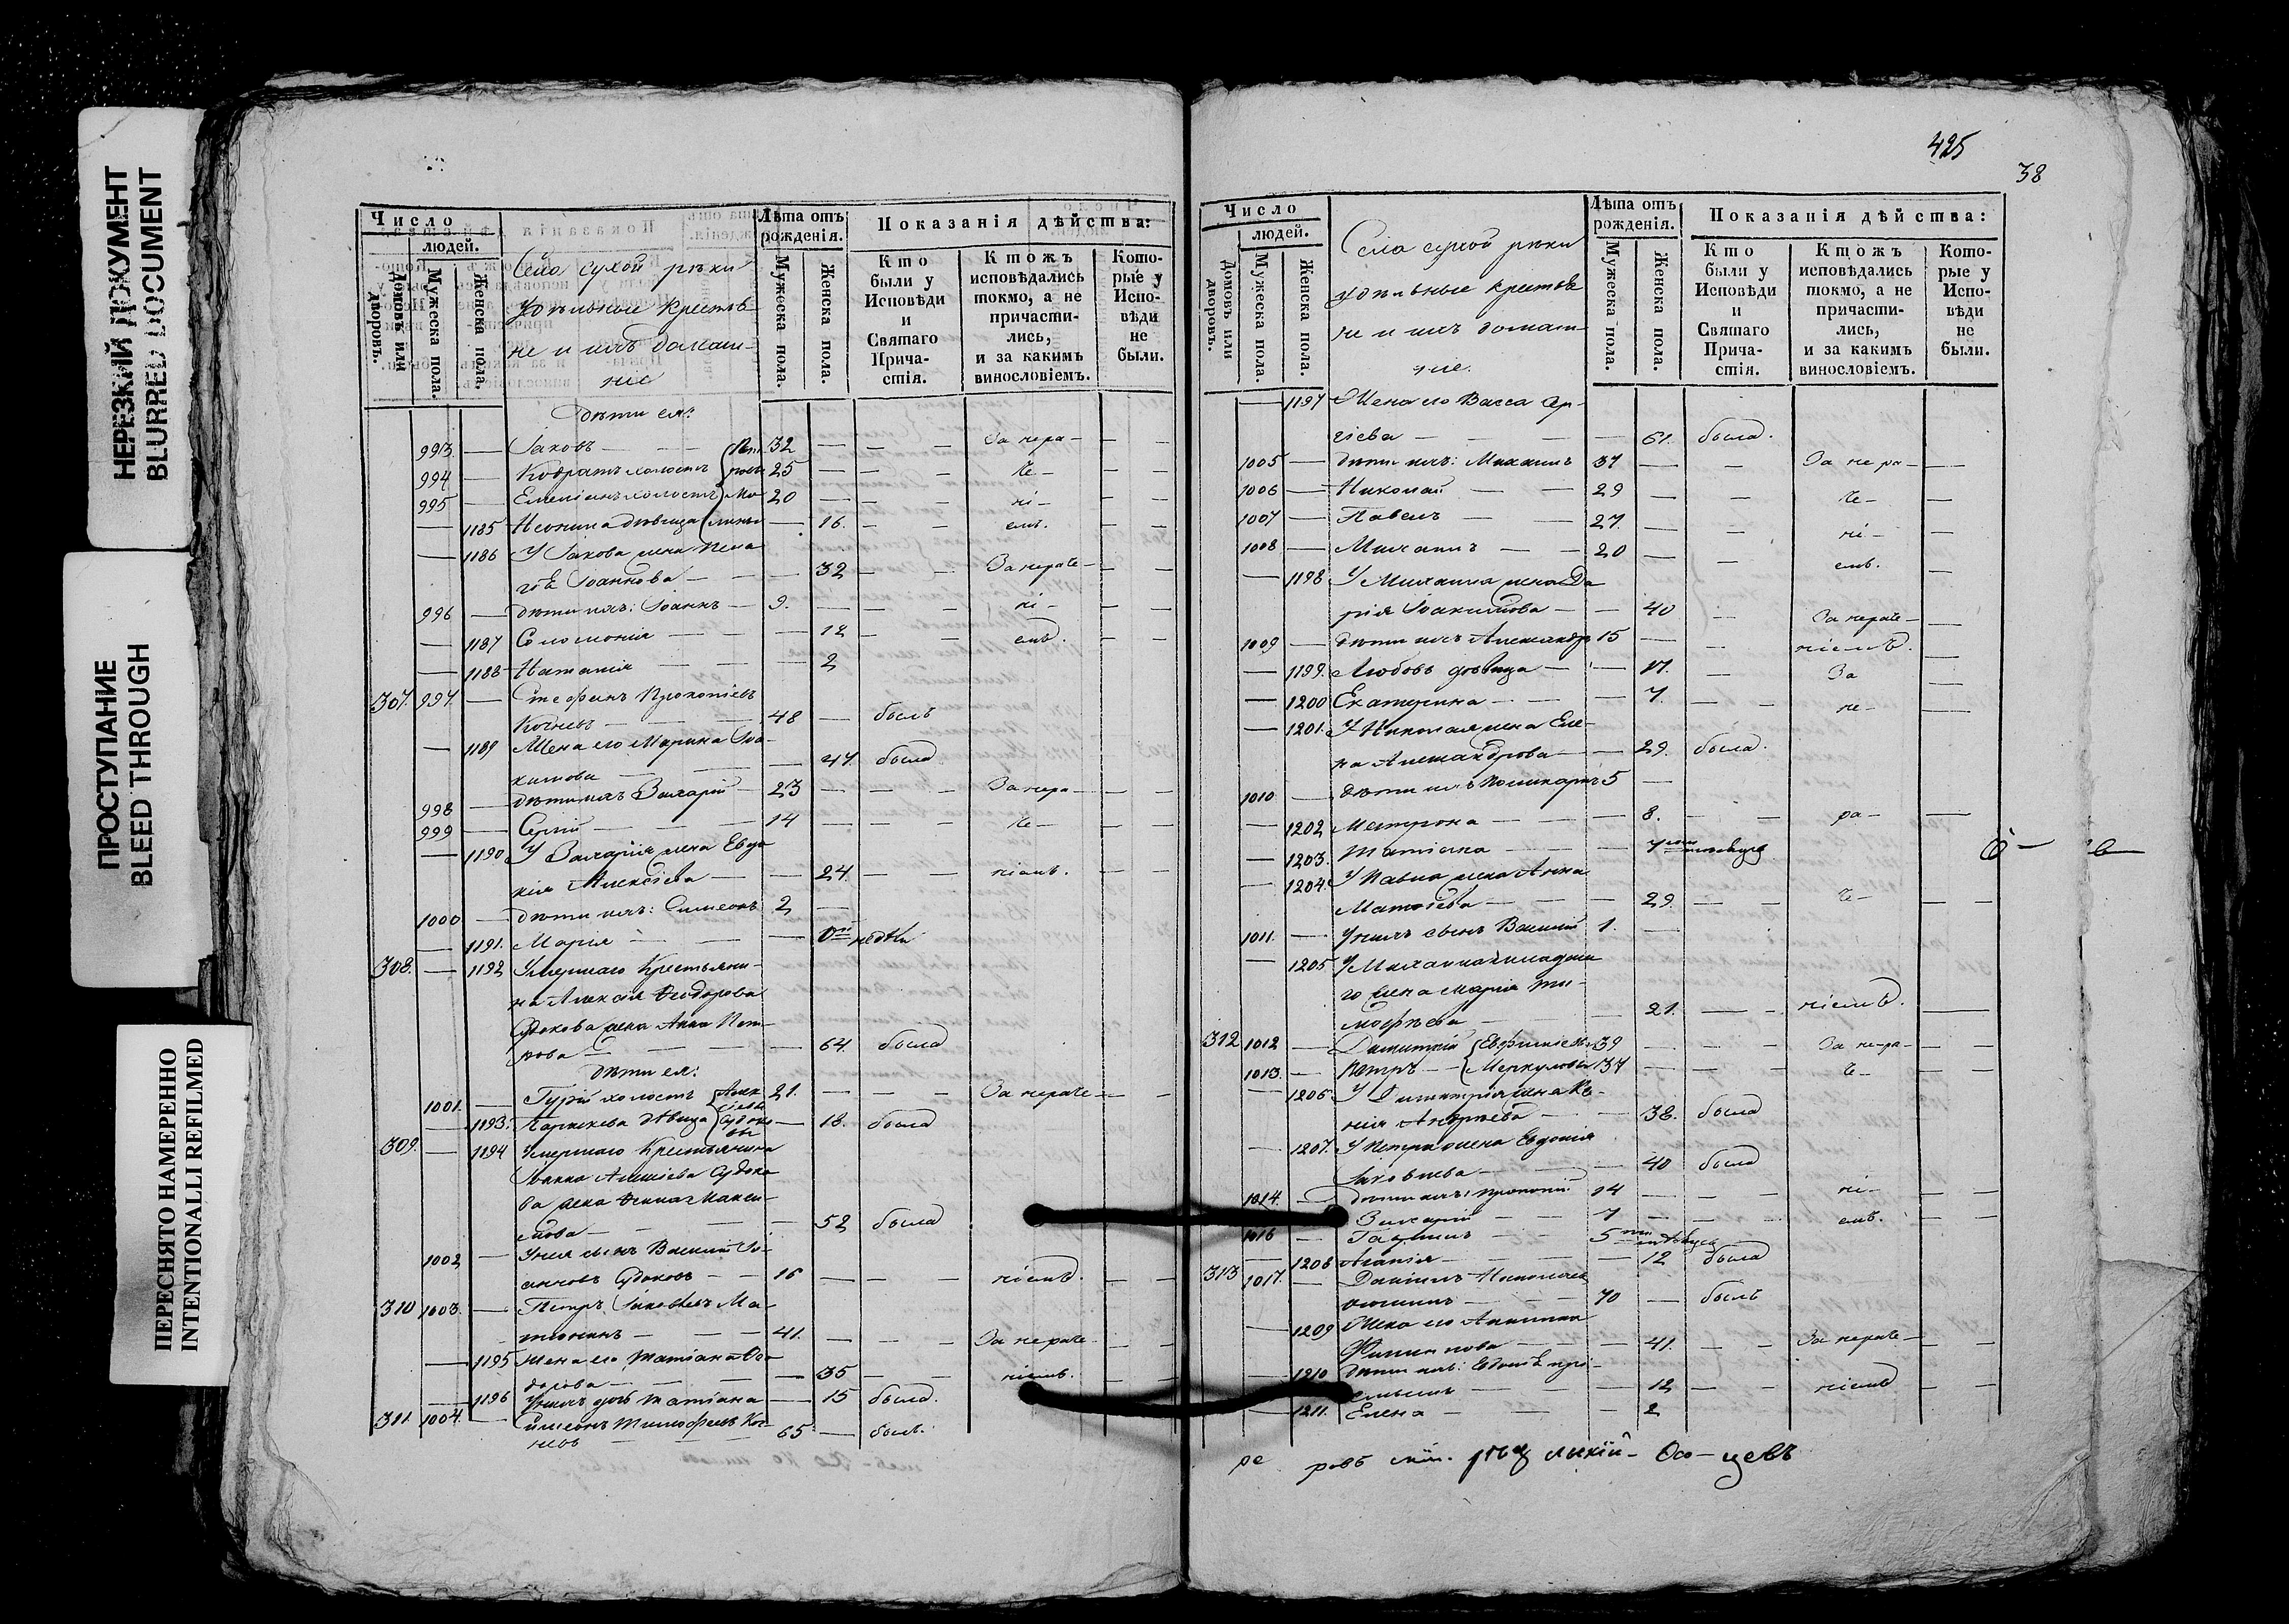 НЕРЕЗКИЙ ДОКУМЕНТ
BLURRED DOCUMENT
ПРОСТУПАНИЕ
BLEED THROUGH
ПЕРЕСНЯТО НАМЕРЕННО
INTENTIONALLI REFILMED
Число
людей.
Домовъ или дворовъ.
Мужеска пола.
Женска пола.
Села сухой рѣки
Удѣльные крестья-
не и ихъ домаш-
ніе
Лѣта отъ рожденія.
Мужеска пола.
Женска пола.
Показанія дѣйства:
Кто были у Исповѣди и Святаго Прича- стія.
Ктожъ исповѣдались токмо, а не причасти- лись, и за какимъ винословіемъ.
Кото- рые у Испо- вѣди не были.
Дѣти ея:
993 — Іаковъ — 32 — — За нера —
994 — Кодратъ холостъ 25 — — че —
995 — Емеліанъ холостъ 20 — — ні —
— 1185 Неонила дѣвица — 16. — емъ.
— 1186 У Іакова жена Пела
гѣя Іоаннова — — 32 — За нераче —
996 — дѣти ихъ: Іоаннъ — 9. — — ні —
— 1187 Соломонія — — 12 — емъ.
— 1188 Наталія — — 2
307. 997. — Стефанъ Прокопіевъ
Кочневъ — 48 — былъ
— 1189 Жена его Марина Іоа-
кимова — 47. была
998 — дѣти ихъ Захарій — 23 — — За нера —
999 — Сергій — 14 — — че —
— 1190 У Захарія жена Евдо
кія Алексіева — — 24. — ніемъ.
1000 — дѣти ихъ: Симеонъ 2 —
— 1191. Марія — — недѣли
308. — 1192 Умершаго Крестьяни-
на Алексія Ѳеодорова
Судокова жена Анна Пет-
рова — — 64. была
Дѣти ея:
1001. — Гурій холостъ 21. — — За нераче —
— 1193. Параскева дѣвица — 18. была
309. — 1194 Умершаго Крестьянина
Іоанна Алексіева Судоко
ва жена Макси-
мова — — 52 была
1002 — У нея сынъ Василій Іо-
анновъ Судоковъ — 16 — — ніемъ.
310 1003. — Петръ Іаковлевъ Ма-
тюнинъ — 41. — — За нераче —
— 1195 жена его Татіана Ѳео
дорова — — 35 — ніемъ.
— 1196 У нихъ дочь Татіана — 15 была.
311. 1004. — Симеонъ Тимофеевъ Коч-
невъ — 65 — былъ.
425
38
Число
людей.
Домовъ или дворовъ.
Мужеска пола.
Женска пола.
Села сухой рѣки
удѣльные крестья
не и ихъ домаш-
ніе.
Лѣта отъ рожденія.
Мужеска пола.
Женска пола.
Показанія дѣйства:
Кто были у Исповѣди и Святаго Прича- стія.
Ктожъ исповѣдались токмо, а не причасти- лись, и за какимъ винословіемъ.
Кото- рые у Испо- вѣди не были.
— 1197 Жена его Васса Сер-
гіева — — 61. была.
1005 — дѣти ихъ: Михаилъ 37 — — За не ра —
1006 — Николай — 29 — — че —
1007 — Павелъ — 27. — — ні —
1008 — Михаилъ — 20 — — емъ.
— 1198 У Михаила жена Да
рія Іоакимова — — 40 — За нераче —
1009 — дѣти ихъ Александръ 15 — — ніемъ.
— 1199. Любовь дѣвица — — 17. — За
— 1200 Екатерина — — 7. — не —
— 1201. У Николая жена Еле-
на Александрова — — 29. была.
1010 — дѣти ихъ Поликарпъ 5 —
— 1202 Матрона — — 8. — ра —
— 1203. Татіана — — 7
— 1204. У Павла жена Анна
Матѳіева — — 29. — че —
1011. — У нихъ сынъ Василій 1. —
— 1205 У Михаила младша
го жена Марія Ти-
мофѣева — — 21. — ніемъ.
312 1012 — Димитрій Евфиміевы 39 — — За не-ра —
1013. — Петръ — Меркуловы 37 — — че —
— 1206. У Димитрія жена Ксе-
нія Андреева — — 38. была
— 1207. У Петра жена Евдокія
Іаковлева — — 40 была
1014. — дѣти ихъ: Прокопій 14 — — ні —
Захарій — 7 — — емъ.
1016 — Гавріилъ — 5
— 1208 — 12 была
313 1017. — Даніилъ Николаевъ
70 — былъ
— 1209 Жена его Акилина
Филиппова — — 41. — За нераче —
— 1210 дѣти ихъ:
— 12 — ніемъ
— 1211. Елена — — 2